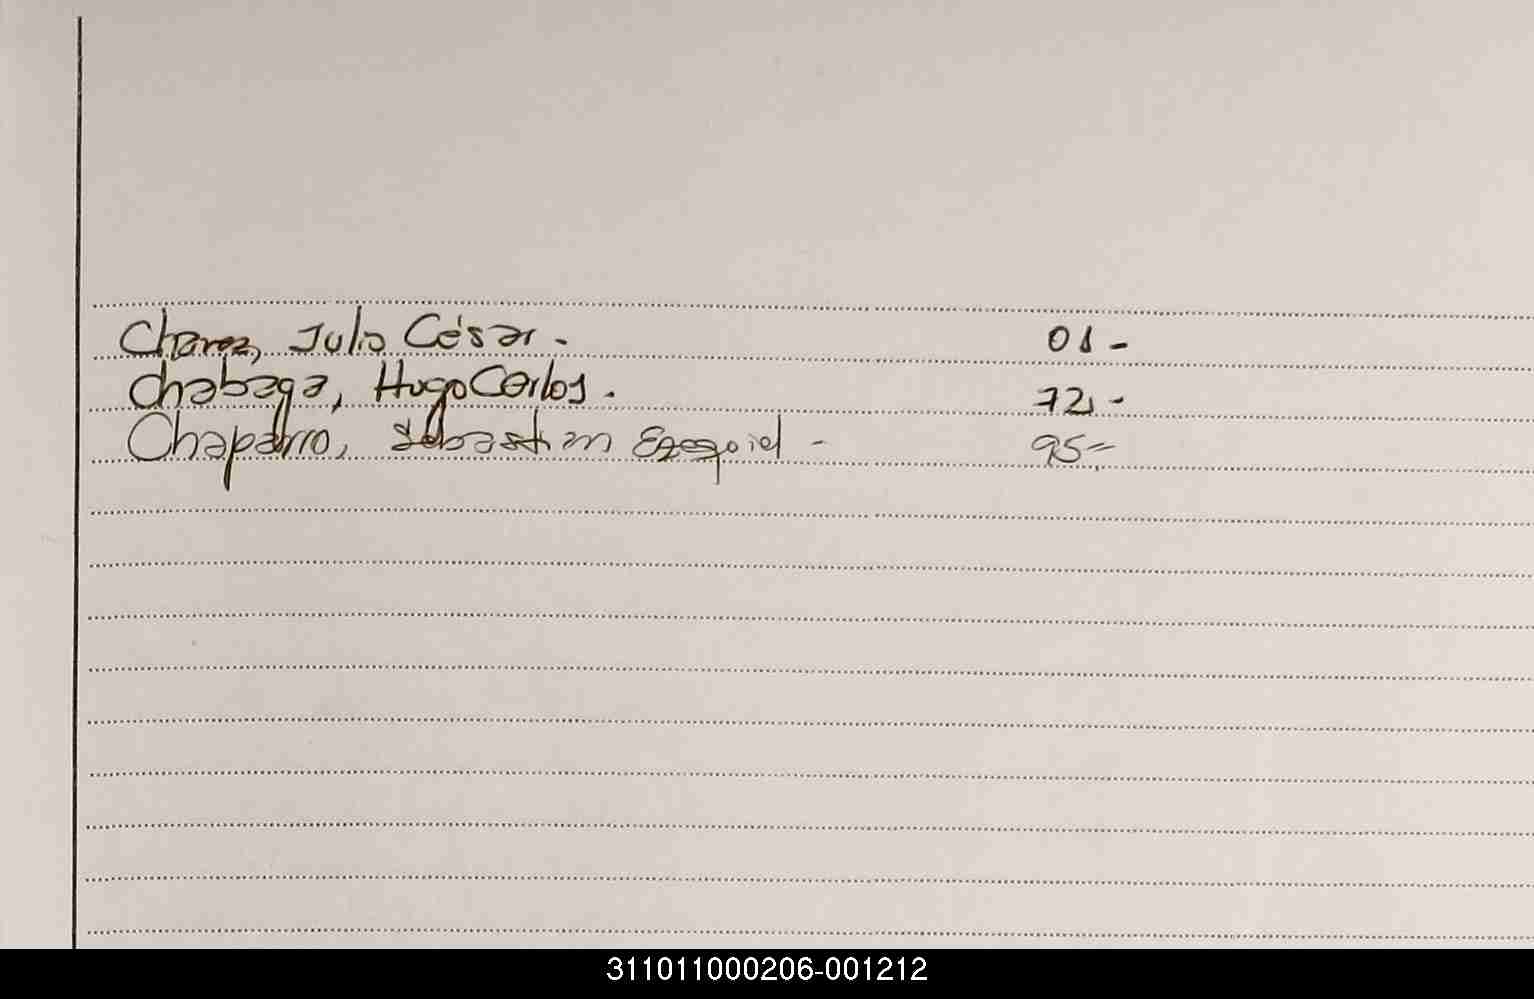 Chavez, Julio César.- 01-
Chabaga, Hugo Carlos.- 72,-
Chaparro, Sebastian Ezequiel- 95=
311011000206-001212